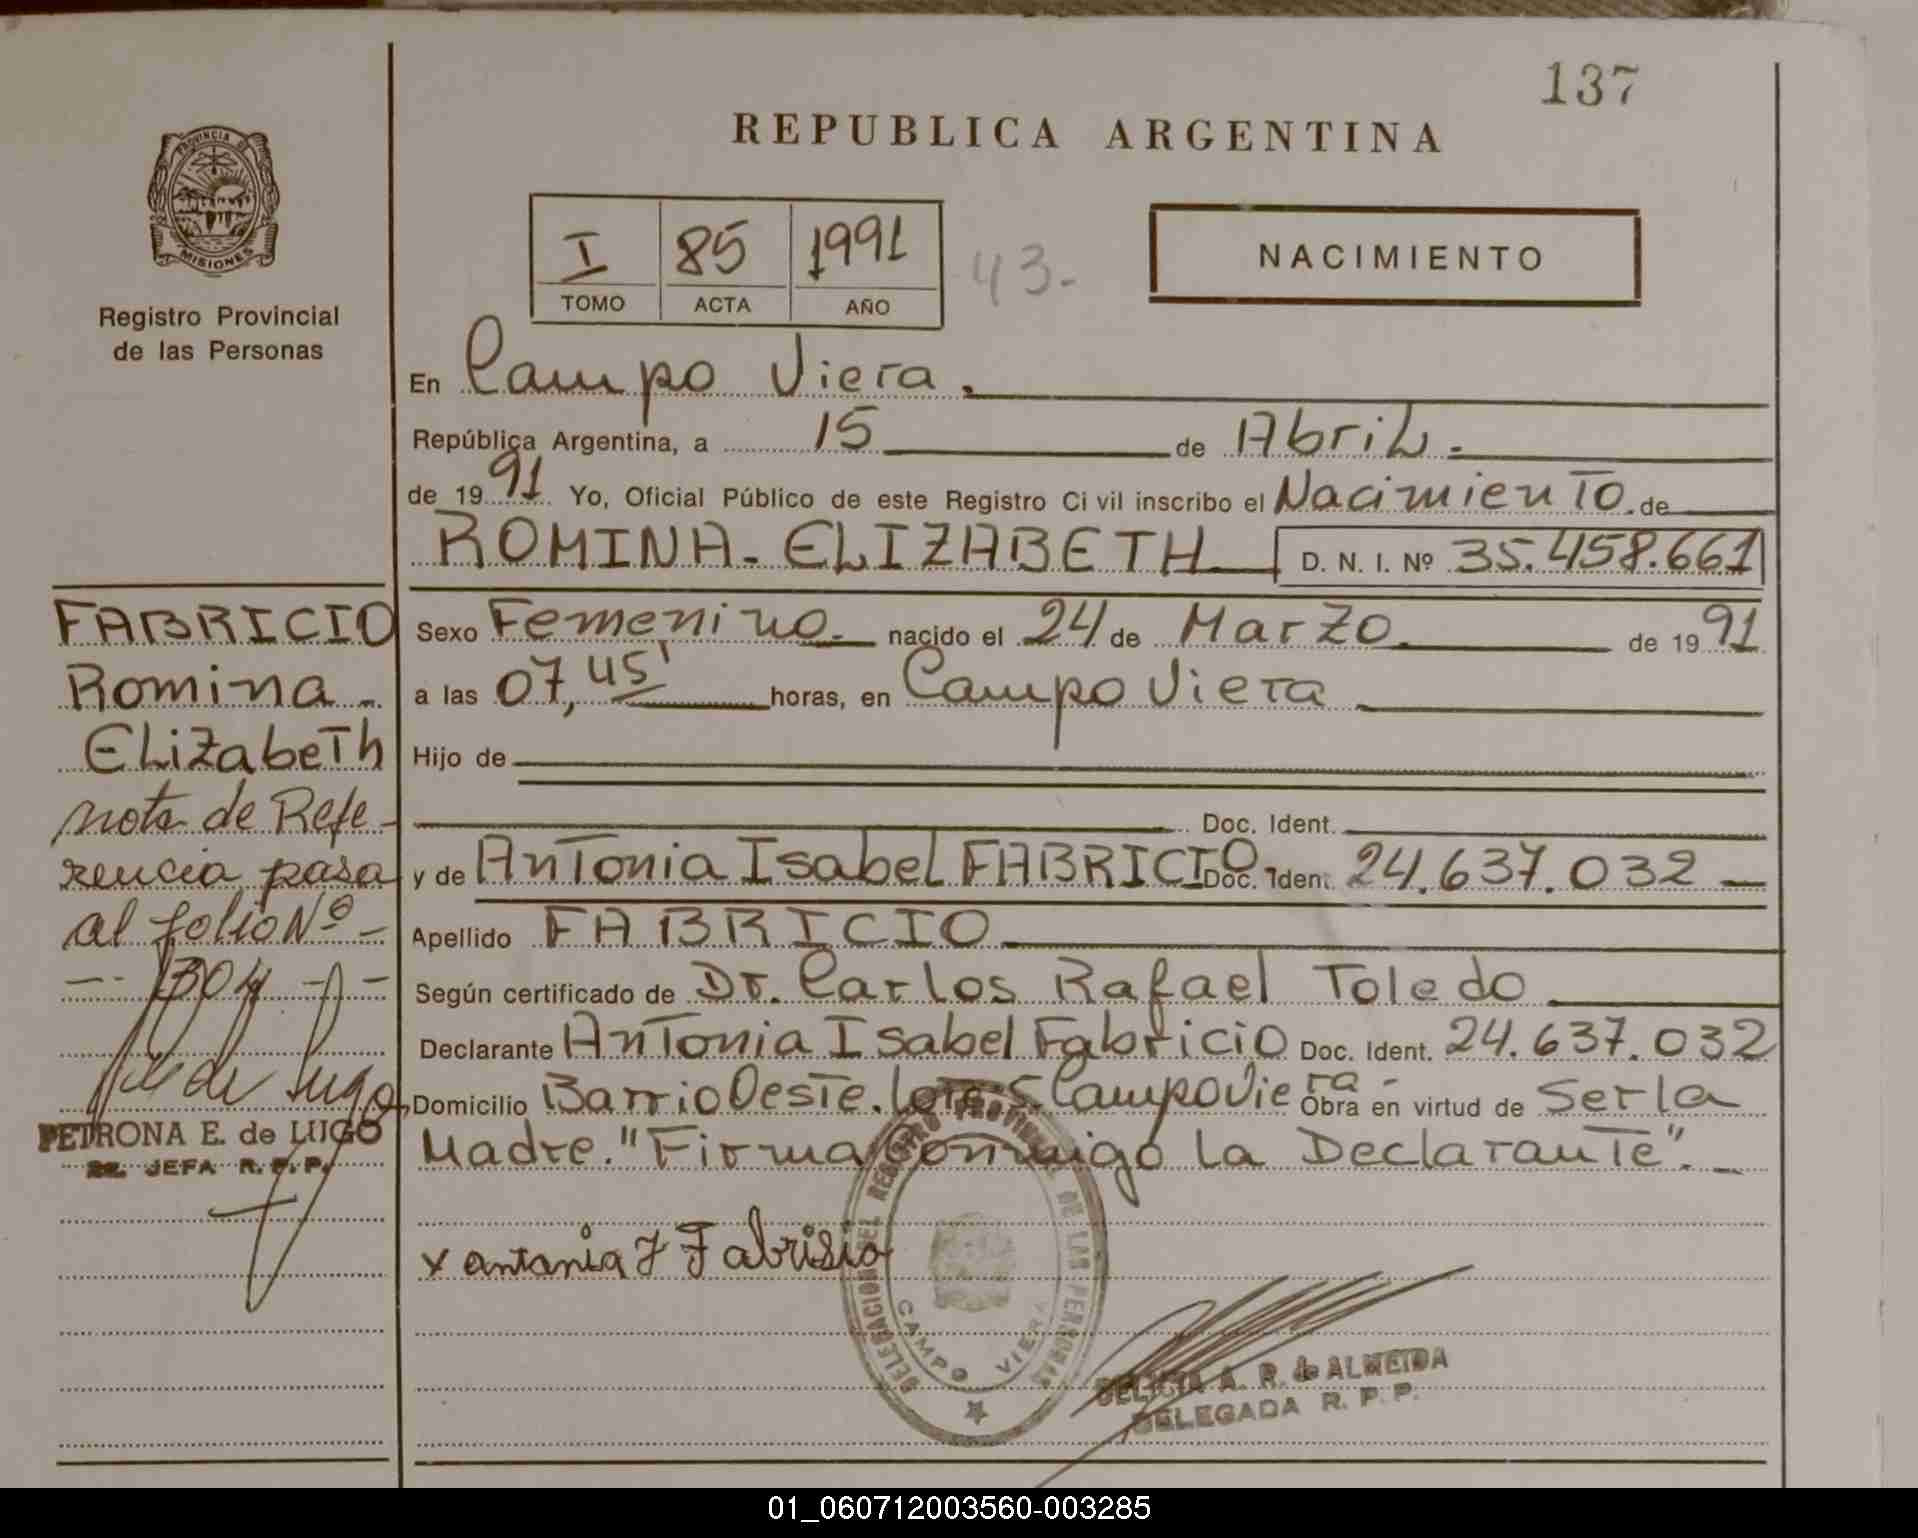 137
REPUBLICA ARGENTINA
PROVINCIA DE
MISIONES
Registro Provincial
de las Personas
I 85 1991
TOMO ACTA AÑO
43.-
NACIMIENTO
En Campo Viera.
República Argentina, a 15 de Abril.
de 1991 Yo, Oficial Público de este Registro Ci vil inscribo el Nacimiento de
ROMINA-ELIZABETH D. N. I. Nº 35.458.661
Sexo Femenino.- nacido el 24 de Marzo. de 1991
a las 07,45' horas, en Campo Viera
Hijo de
Doc. Ident.
y de Antonia Isabel FABRICIO Doc. Ident. 24.637.032 -
Apellido FABRICIO
Según certificado de Dr. Carlos Rafael Toledo
Declarante Antonia Isabel Fabricio Doc. Ident. 24.637.032
Domicilio Barrio Oeste. Lote 5 Campo Viera- Obra en virtud de Ser la
Madre. "Firma Conmigo la Declarante".-
x antania I Fabrisio
FABRICIO
Romina-
Elizabeth
nota de Refe-
rencia pasa
al folio Nº -
PETRONA E. de LUGO
JEFA R. P. P.
DELEGACION DEL REGISTRO PROVINCIAL DE LAS PERSONAS
CAMPO VIERA
DELICIA A. R. de ALMEIDA
DELEGADA R. P. P.
01_060712003560-003285